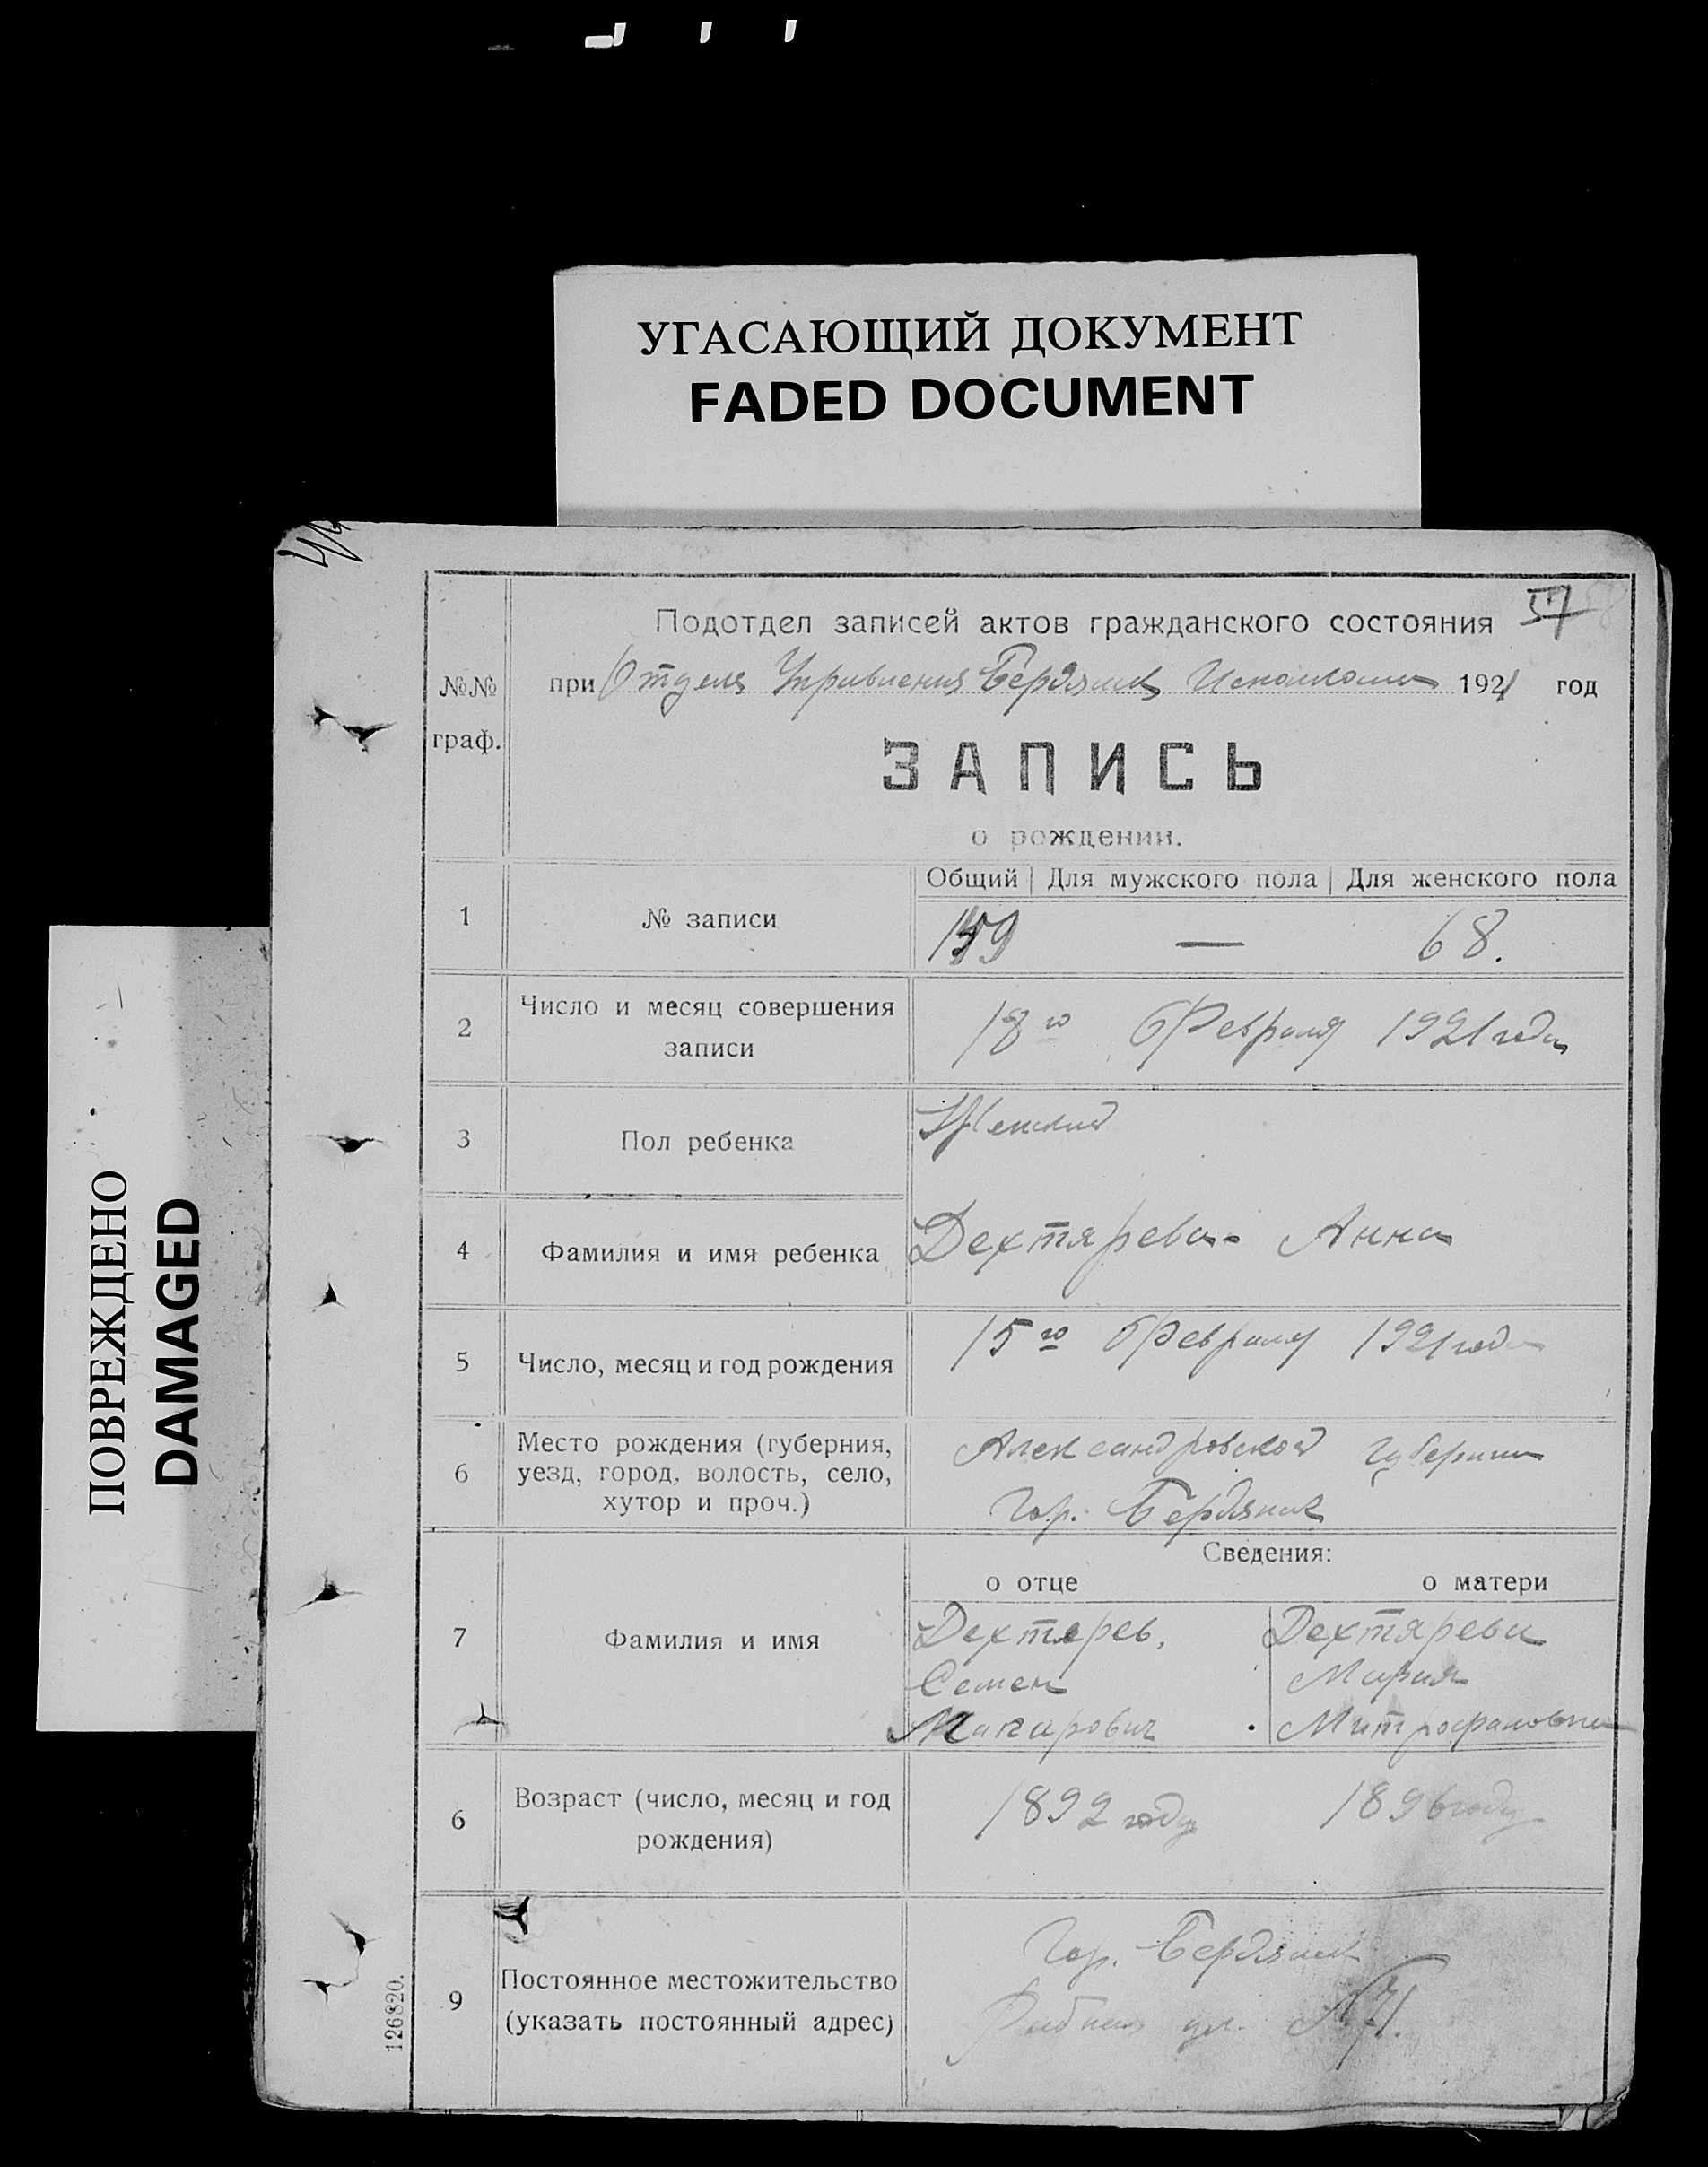 УГАСАЮЩИЙ ДОКУМЕНТ
FADED DOCUMENT
ПОВРЕЖДЕНО
DAMAGED
57
Подотдел записей актов гражданского состояния
при Отделе Управления Бердянск Исполкома 1921 год
№№
граф.
ЗАПИСЬ
о рождении.
Общий Для мужского пола Для женского пола
1 № записи 159 — 68.
2 Число и месяц совершения
записи
18го Февраля 1921 года
3 Пол ребенка Женский
4 Фамилия и имя ребенка Дехтярева Анна
5 Число, месяц и год рождения 15го Февраля 1921 года
6 Место рождения (губерния,
уезд, город, волость, село,
хутор и проч.)
Александровской губернии
Гор. Бердянск
Сведения:
о отце о матери
7 Фамилия и имя
Дехтерев, Дехтярева
Семен Мария
Макарович Митрофановна
6 Возраст (число, месяц и год
рождения)
1892 году 1896 году
9 Постоянное местожительство
(указать постоянный адрес)
Гор. Бердянск
ул. №71.
126820.